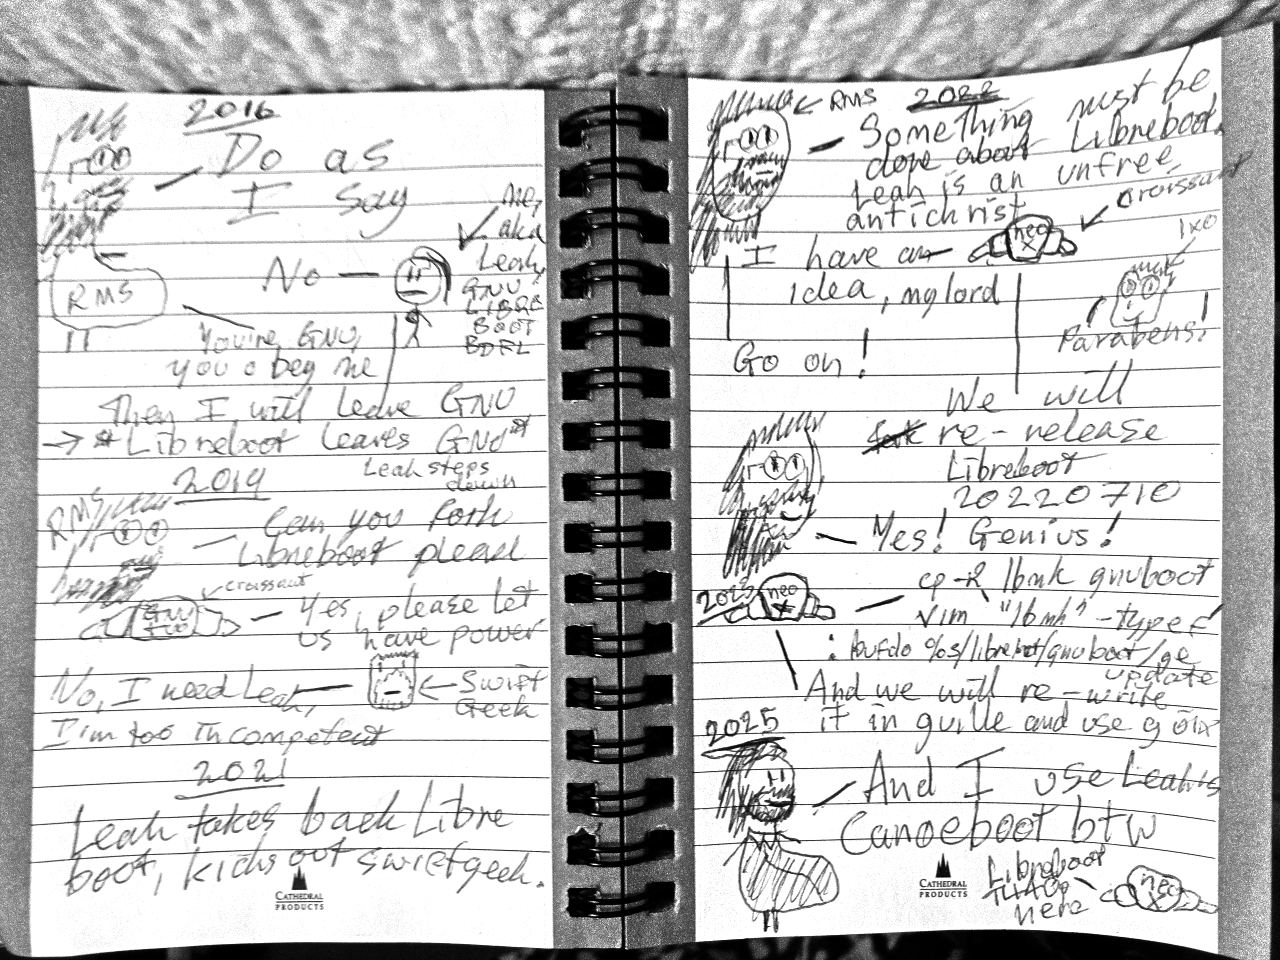 2016
Do as
I say
me,
aka
Leah
GNU
LIBRE
BOOT
BDFL
No
RMS
You're GNU,
you obey me
Then I will leave GNU
→ * Libreboot leaves GNU
Leah steps
down
2019
RMS
Can you fork
Libreboot please
croissant
GNU
Yes, please let
us have power
No, I need Leah,
I'm too incompetent
← Swift
Geek
2021
Leah takes back Libre
boot, kicks out swiftgeek.
CATHEDRAL
PRODUCTS
← RMS
2022
Something must be
done about Libreboot.
Leah is an unfree
antichrist
croissant
neo
X
I have an
idea, my lord
Parabens!
Go on!
We will
re-release
Libreboot
20220710
Yes! Genius!
2023
neo
X
cp -R lbmk gnuboot
vim "lbmk" - type
:bufdo %s/libreboot/gnuboot/ge
update
And we will re-write
it in guile and use guix
2025
And I use Leah's
Canoeboot btw
Libreboot
T440p
here
neo
X
CATHEDRAL
PRODUCTS